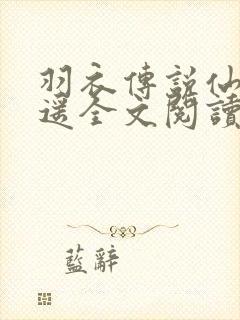 羽衣傳說仙
遥全文閱讀
藍辭